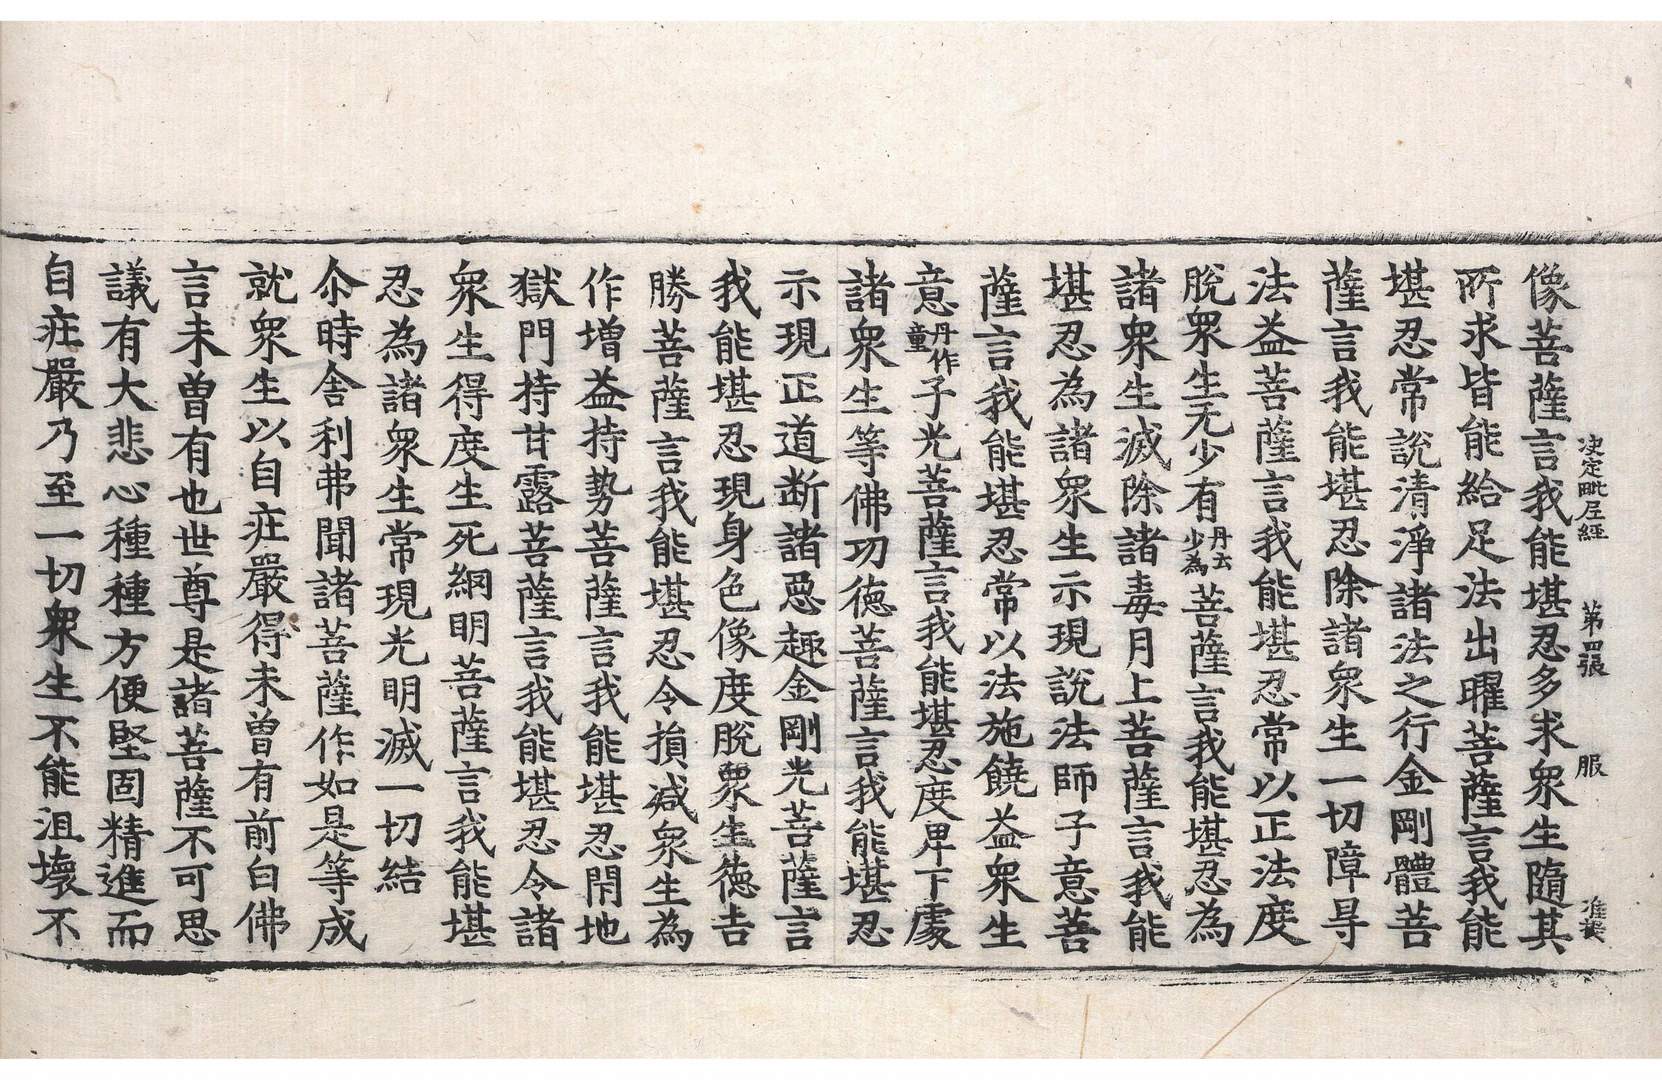 决定毗尼經 第四張 服
像菩薩言我能堪忍多求衆生隨其
所求皆能給足法出曜菩薩言我能
堪忍常說清淨諸法之行金剛體菩
薩言我能堪忍除諸衆生一切障㝵
法益菩薩言我能堪忍常以正法度
脫衆生无少有丹云少為菩薩言我能堪忍為
諸衆生滅除諸毒月上菩薩言我能
堪忍為諸衆生示現說法師子意菩
薩言我能堪忍常以法施饒益衆生
意丹作童子光菩薩言我能堪忍度卑下處
諸衆生等佛功德菩薩言我能堪忍
示現正道断諸惡趣金剛光菩薩言
我能堪忍現身色像度脫衆生德吉
勝菩薩言我能堪忍令損減衆生為
作增益持勢菩薩言我能堪忍閇地
獄門持甘露菩薩言我能堪忍令諸
衆生得度生死網明菩薩言我能堪
忍為諸衆生常現光明滅一切結
尒時舍利弗聞諸菩薩作如是等成
就衆生以自莊嚴得未曾有前白佛
言未曾有也世尊是諸菩薩不可思
議有大悲心種種方便堅固精進而
自莊嚴乃至一切衆生不能沮壞不